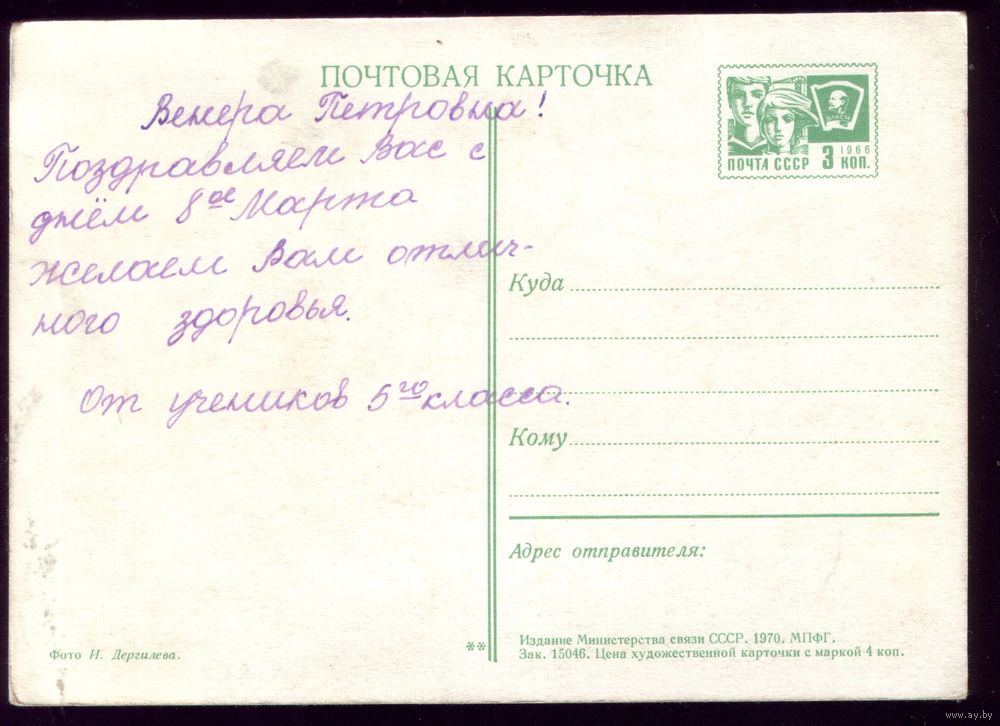 ПОЧТОВАЯ КАРТОЧКА
Венера Петровна!
Поздравляем Вас с
днём 8ое Марта
желаем Вам отлич-
ного здоровья.
От учеников 5го класса.
ВЛКСМ
1966
ПОЧТА СССР 3 КОП.
Куда
Кому
Адрес отправителя:
Фото И. Дергилева.
**
Издание Министерства связи СССР. 1970. МПФГ.
Зак. 15046. Цена художественной карточки с маркой 4 коп.
www.ay.by